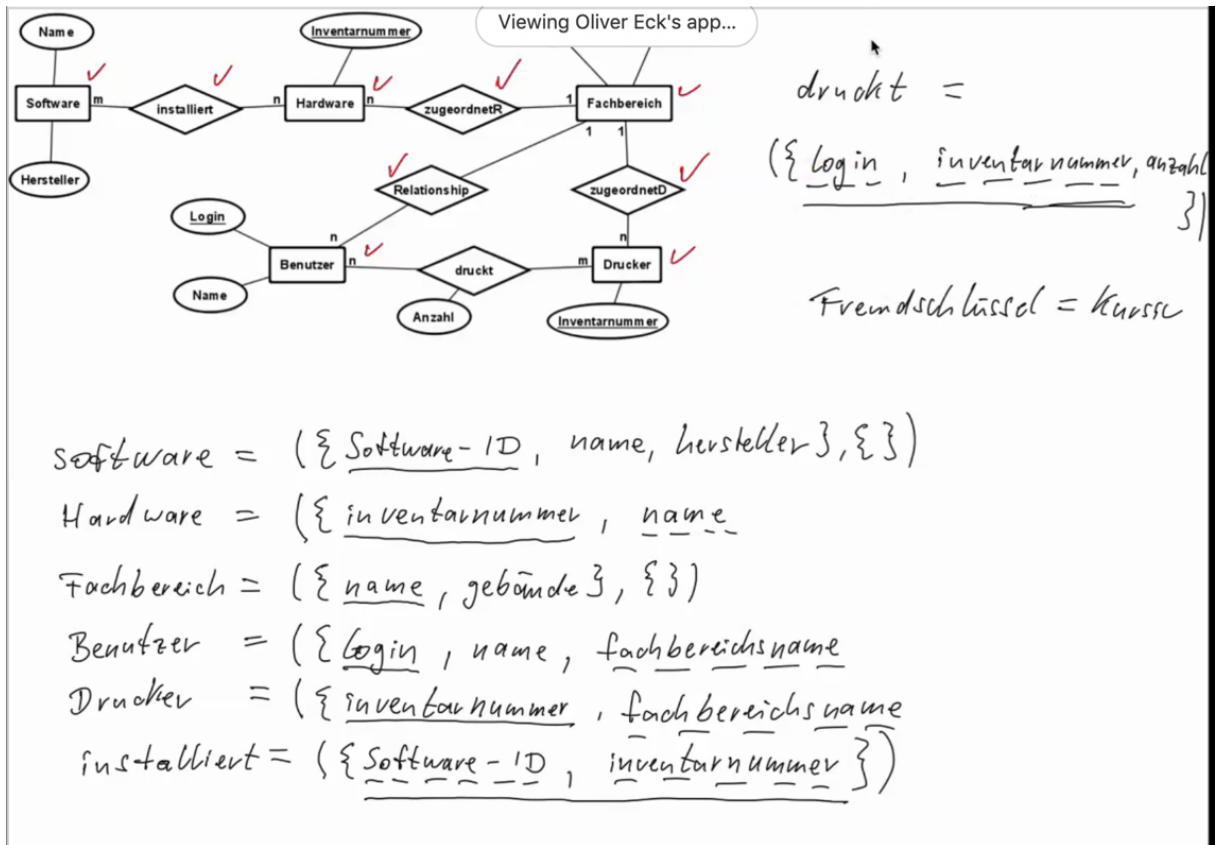 Viewing Oliver Eck's app...
Name
Inventarnummer
Software
m
installiert
n
Hardware
n
zugeordnetR
1
Fachbereich
1
1
Hersteller
Relationship
zugeordnetD
Login
n
n
Benutzer
n
druckt
m
Drucker
Name
Anzahl
Inventarnummer
druckt =
({login, inventarnummer, anzahl
})
Fremdschlüssel = Kurssc
software = ({Software-ID, name, hersteller},{})
Hardware = ({inventarnummer, name
Fachbereich = ({name, gebäude}, {})
Benutzer = ({Login, name, fachbereichsname
Drucker = ({inventarnummer, fachbereichsname
installiert = ({Software-ID, inventarnummer})